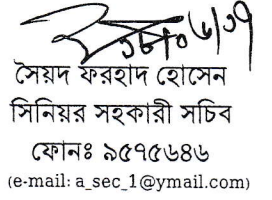 সৈয়দ ফরহাদ হোসেন
সিনিয়র সহকারী সচিব
ফোনঃ ৯৫৭৫৬৪৬
(e-mail: a_sec_1@ymail.com)